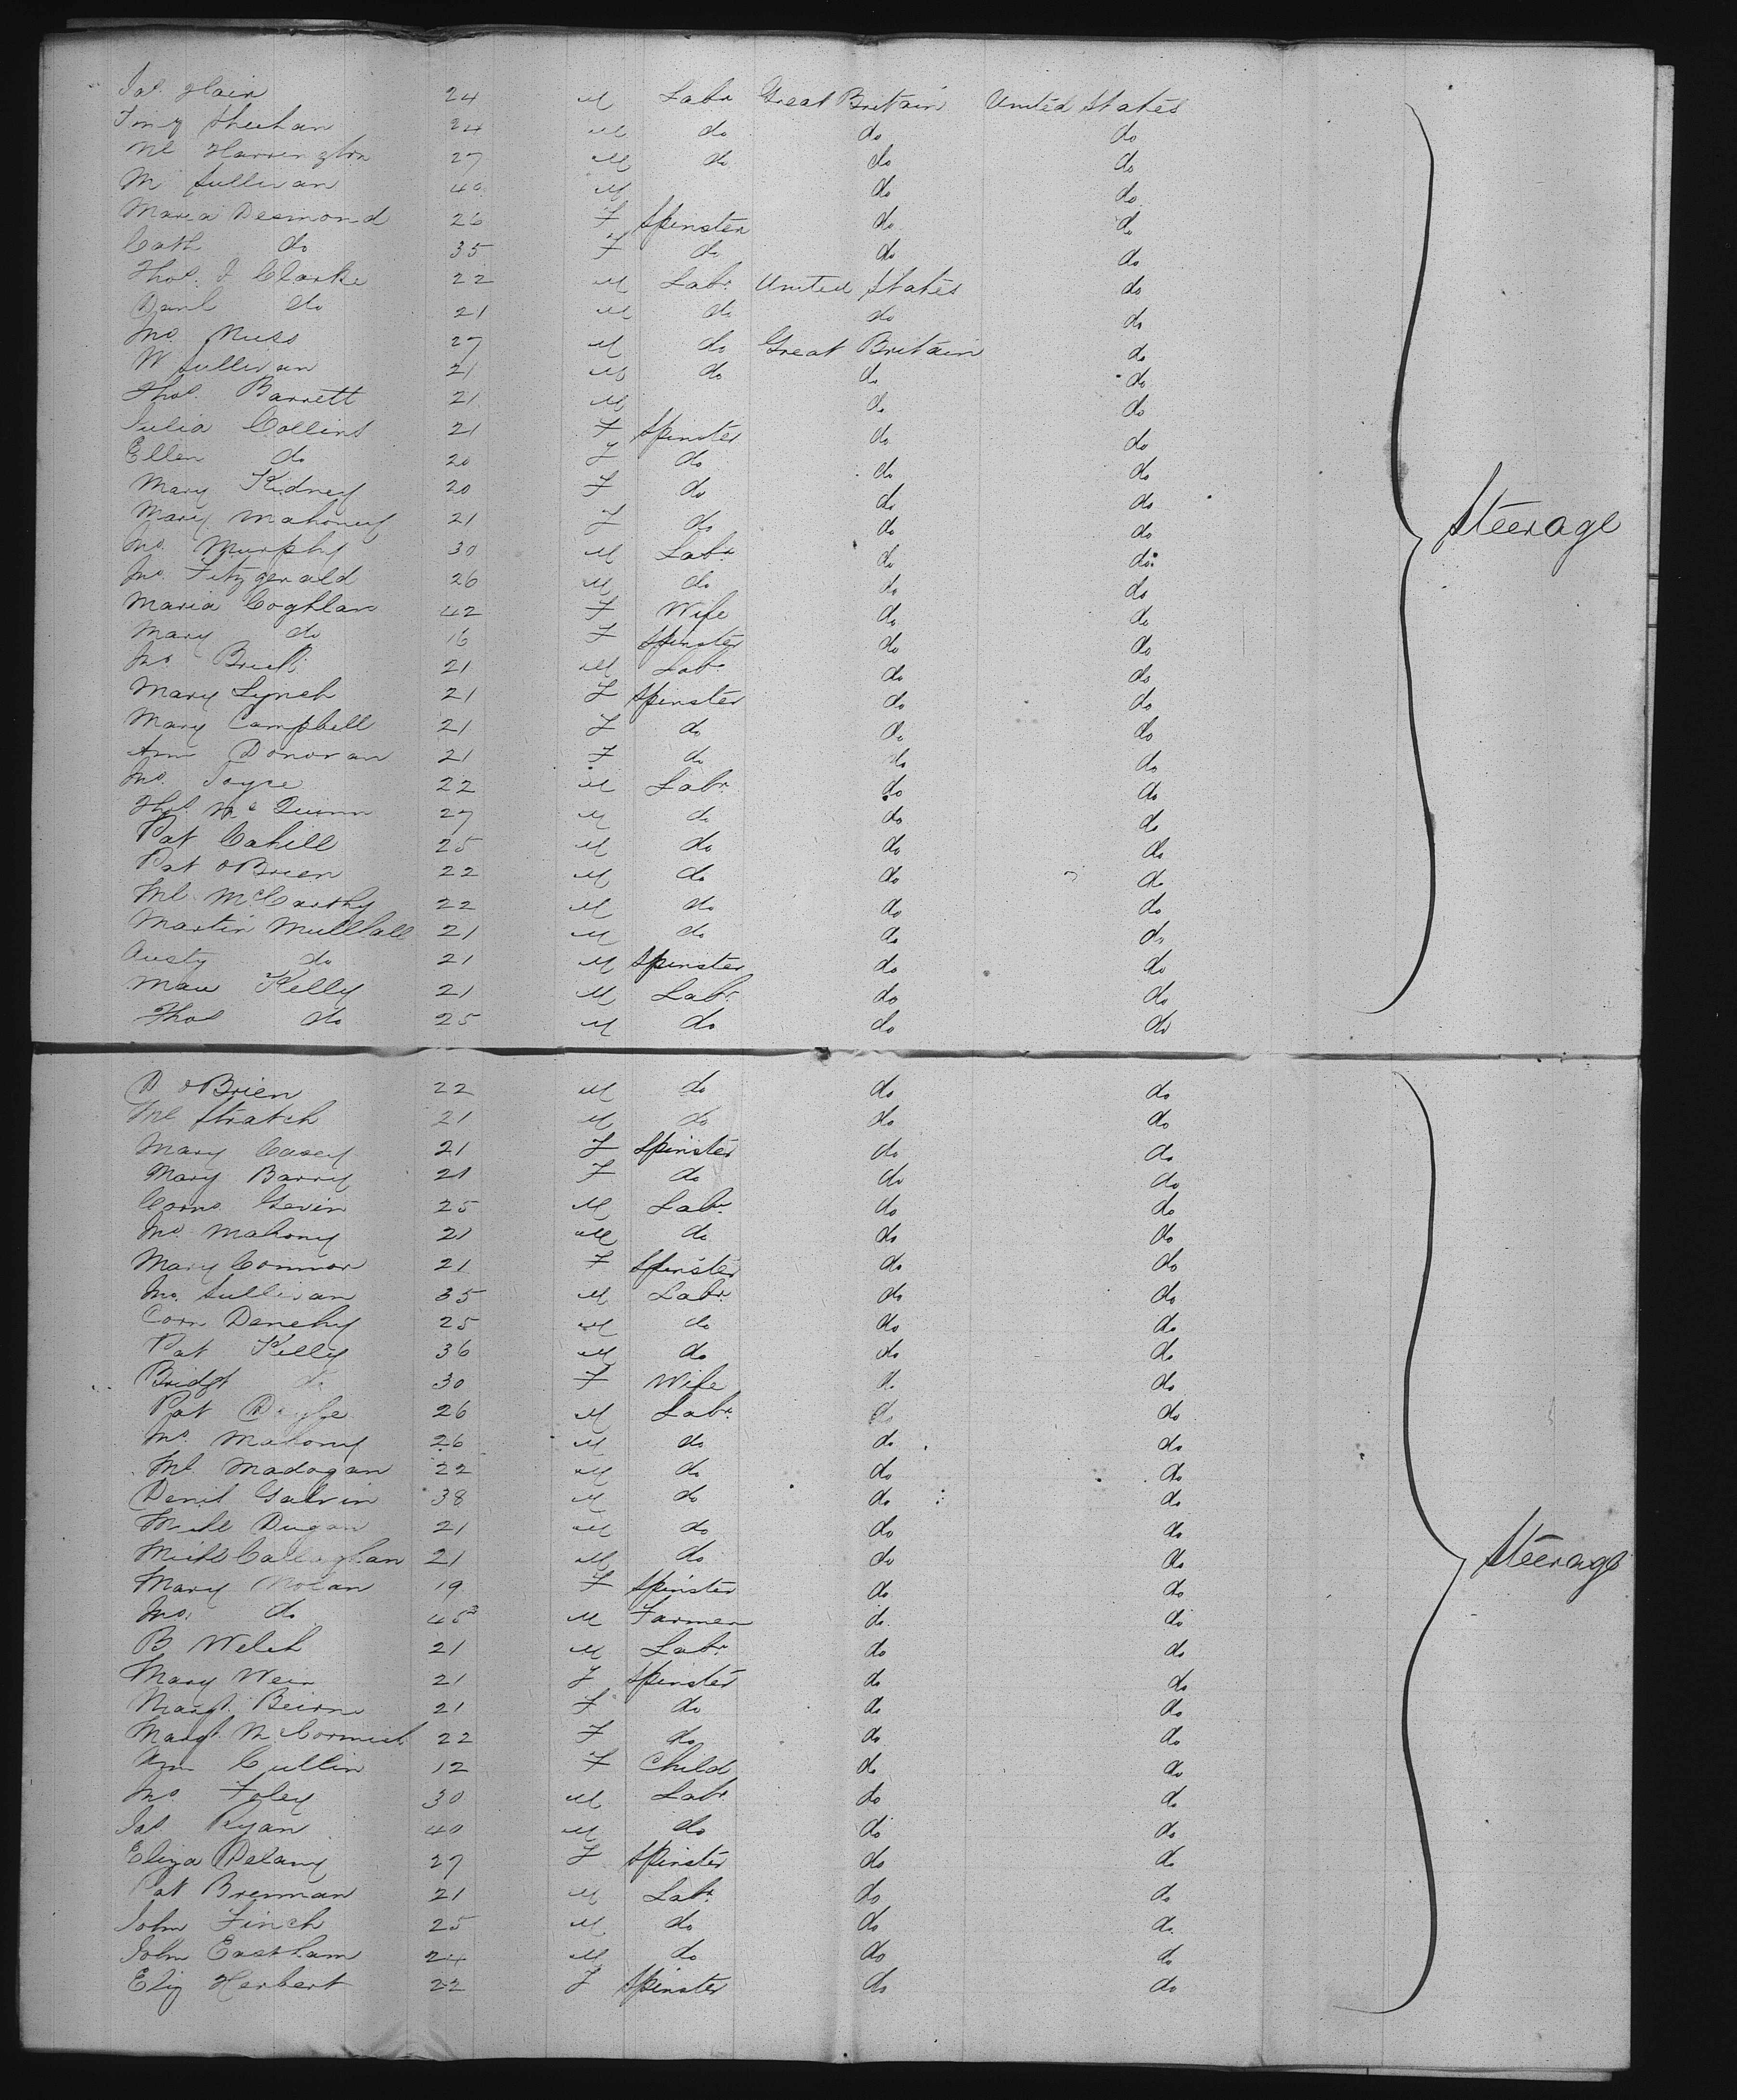 Jas. Hair 24 M Labr Great Britain United States
Timy Sheehan 24 M do do do
Ml Harrington 27 M do do do
M Sullivan 40 M do do
Maria Desmond 26 F Spinster do do
Cath do 35 F do do do
Thos. J Clarke 22 M Labr. United States do
Danl do 21 M do do do
Jno. Nuss 27 M do Great Britain do
W Sullivan 21 M do do do
Thos. Barrett 21 M do do
Julia Collins 21 F Spinster do do
Ellen do 20 F do do do
Mary Kidney 20 F do do do
Mary Mahoney 21 F do do do
Jno. Murphy 30 M Labr. do do
Steerage
Jno. Fitzgerald 26 M do do do
Maria Coghlan 42 F Wife do do
Mary do 16 F Spinster do do
Jno 21 M Labr do do
Mary Lynch 21 F Spinster do do
Mary Campbell 21 F do do do
Ann Donovan 21 F do do do
Jno. Joyce 22 M Labr. do do
Thos. McQuinn 27 M do do do
Pat Cahill 25 M do do do
Pat OBrien 22 M do do do
Ml. McCarthy 22 M do do do
Martin Mullhall 21 M do do do
Austy do 21 M Spinster do do
Mau Kelly 21 M Labr. do do
Thos do 25 M do do do
D OBrien 22 M do do do
Ml Stratch 21 M do do do
Mary Casey 21 F Spinster do do
Mary Barry 21 F do do do
Corns. Gevin 25 M Labr. do do
Jno. Mahony 21 M do do do
Mary Connor 21 F Spinster do do
Jno. Sullivan 35 M Labr. do do
Corn Denehy 25 M do do do
Pat Kelly 36 M do do do
Bridgt do 30 F Wife do do
Pat Doyle 26 M Labr. do do
Jno. Mahony 26 M do do do
Ml. Madogan 22 M do do do
Denil Galvin 38 M do do do
Michl Dugan 21 M do do do
Steerage
Michl Callaghan 21 M do do do
Mary Nolan 19 F Spinster do do
Jno. do 45 M Farmer do do
B Welch 21 M Labr. do do
Mary Weir 21 F Spinster do do
Margt. Beirne 21 F do do do
Margt. McCormick 22 F do do do
Ann Cullin 12 F Child do do
Jno. Foley 30 M Labr. do do
Jas. Ryan 40 M do do do
Eliza Delany 27 F Spinster do do
Pat Brennan 21 M Labr. do do
John Finch 25 M do do do
John Eastham 24 M do do do
Eliz Herbert 22 F Spinster do do